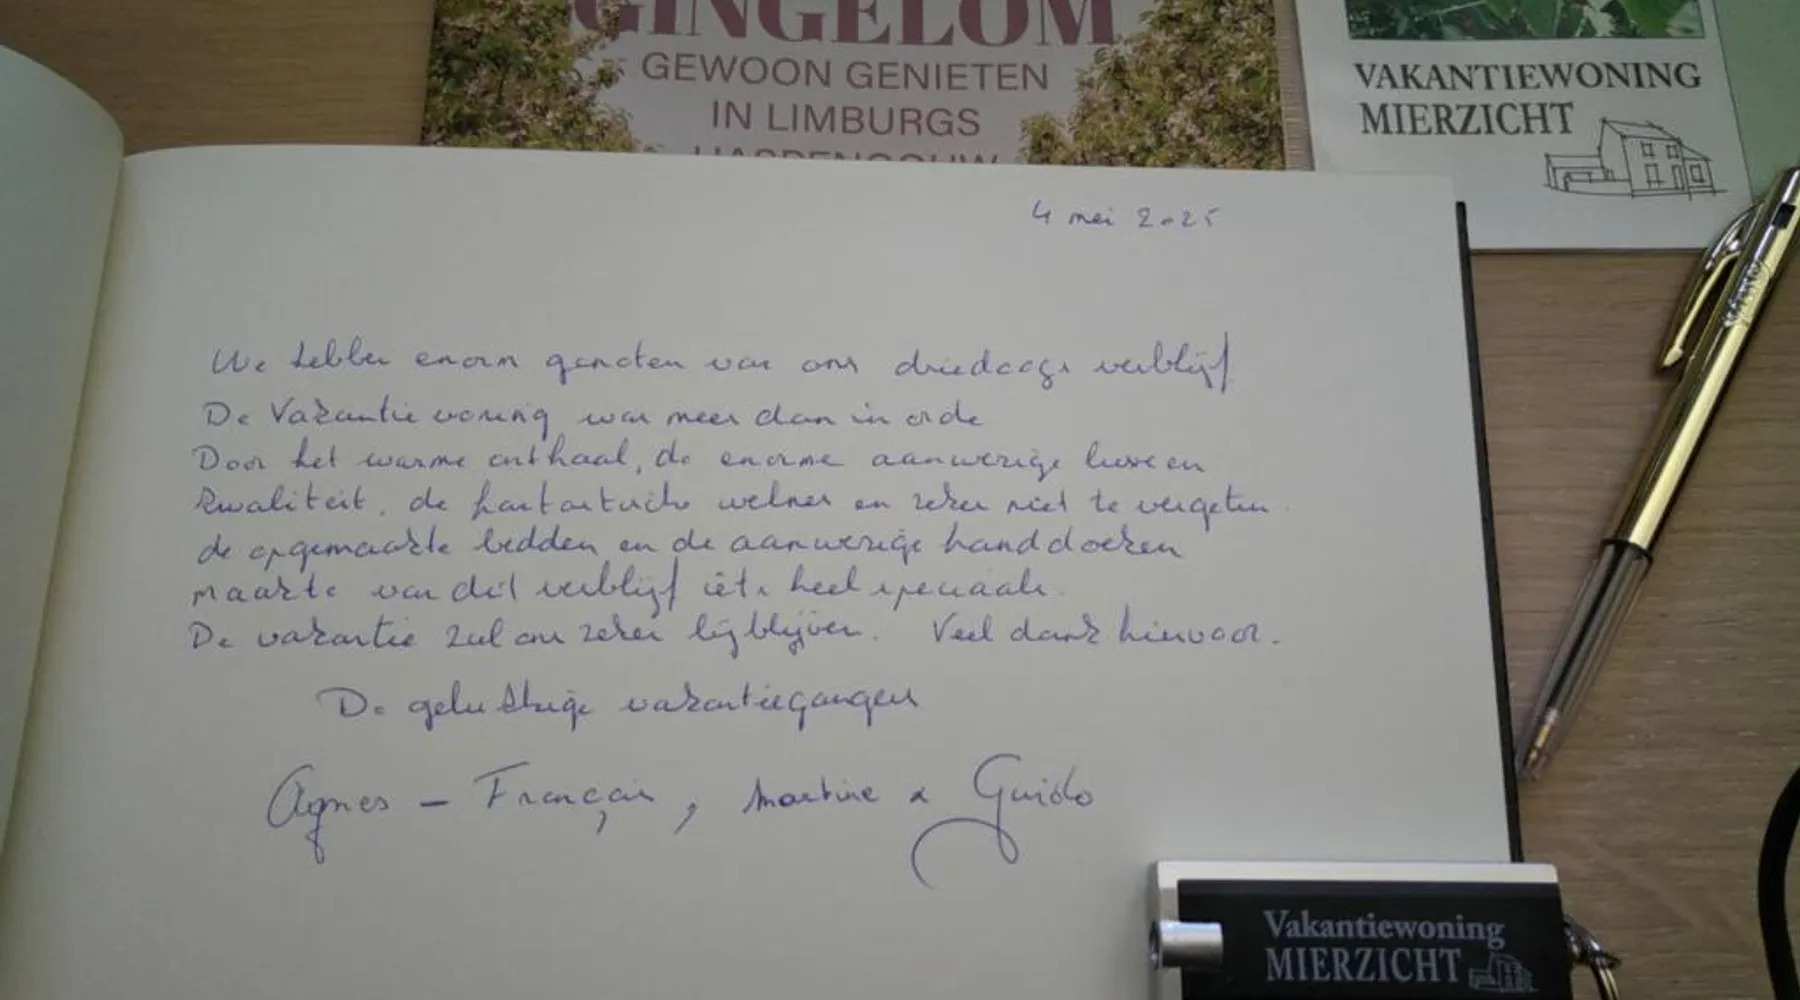 GINGELOM
GEWOON GENIETEN
IN LIMBURGS
HASPENGOUW
VAKANTIEWONING
MIERZICHT
4 mei 2025
We hebben enorm genoten van ons driedaags verblijf
De Vakantiewoning was meer dan in orde
Door het warme onthaal, de enorme aanwezige luxe en
kwaliteit, de fantastische welness en zeker niet te vergeten
de opgemaakte bedden en de aanwezige handdoeken
maakte van dit verblijf iets heel speciaals.
De vakantie zal ons zeker bijblijven. Veel dank hiervoor.
De gelukkige vakantiegangers
Agnes - François, Martine & Guido
Vakantiewoning
MIERZICHT